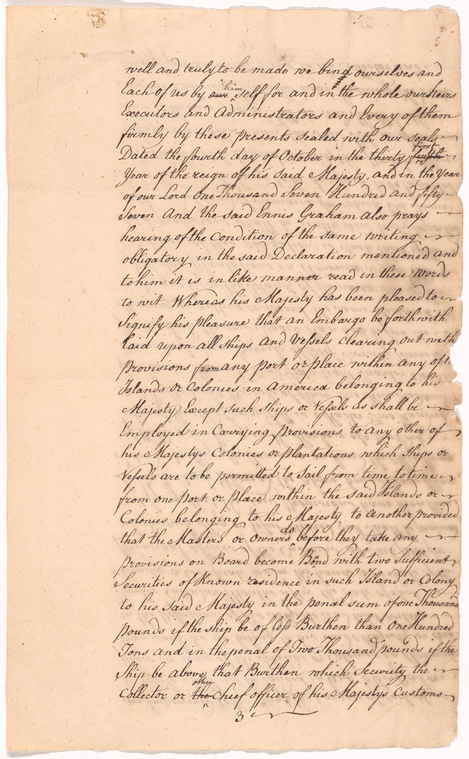 well and truly to be made we bind ourselves and
Each of us by him self for and in the whole our heirs
Executors and Administrators and Every of them
firmly by these presents Sealed with our Seals
Dated the fourth day of October in the thirty first
Year of the reign of his said Majesty, and in the Year
of our Lord One Thousand Seven Hundred and fifty
Seven And the said Ennis Graham also prays
hearing of the Condition of the same writing
obligatory in the said Declaration mentioned and
to him it is in like manner read in these words
to wit. Whereas his Majesty has been pleased to
Signify his pleasure that an Embargo be forthwith
laid upon all Ships and Vessels clearing out with
Provisions from any port or place within any of the
Islands or Colonies in America belonging to his
Majesty Except such Ships or Vessels as shall be
Employed in Carrying provisions to any other of
his Majestys Colonies or plantations which Ships or
Vessels are to be permitted to Sail from time to time
from one port or place within the Said Islands or
Colonies belonging to his Majesty to Another provided
that the Masters or Owners do before they take any
provisions on Board become Bond with two Sufficient
Securities of Known residence in such Island or Colony
to his Said Majesty in the penal sum of one Thousand
pounds if the ship be of less Burthen than One Hundred
Tons and in the penal of Two Thousand pounds if the
Ship be above that Burthen which Security the
Collector or the other Chief officer of his Majestys Customs
3